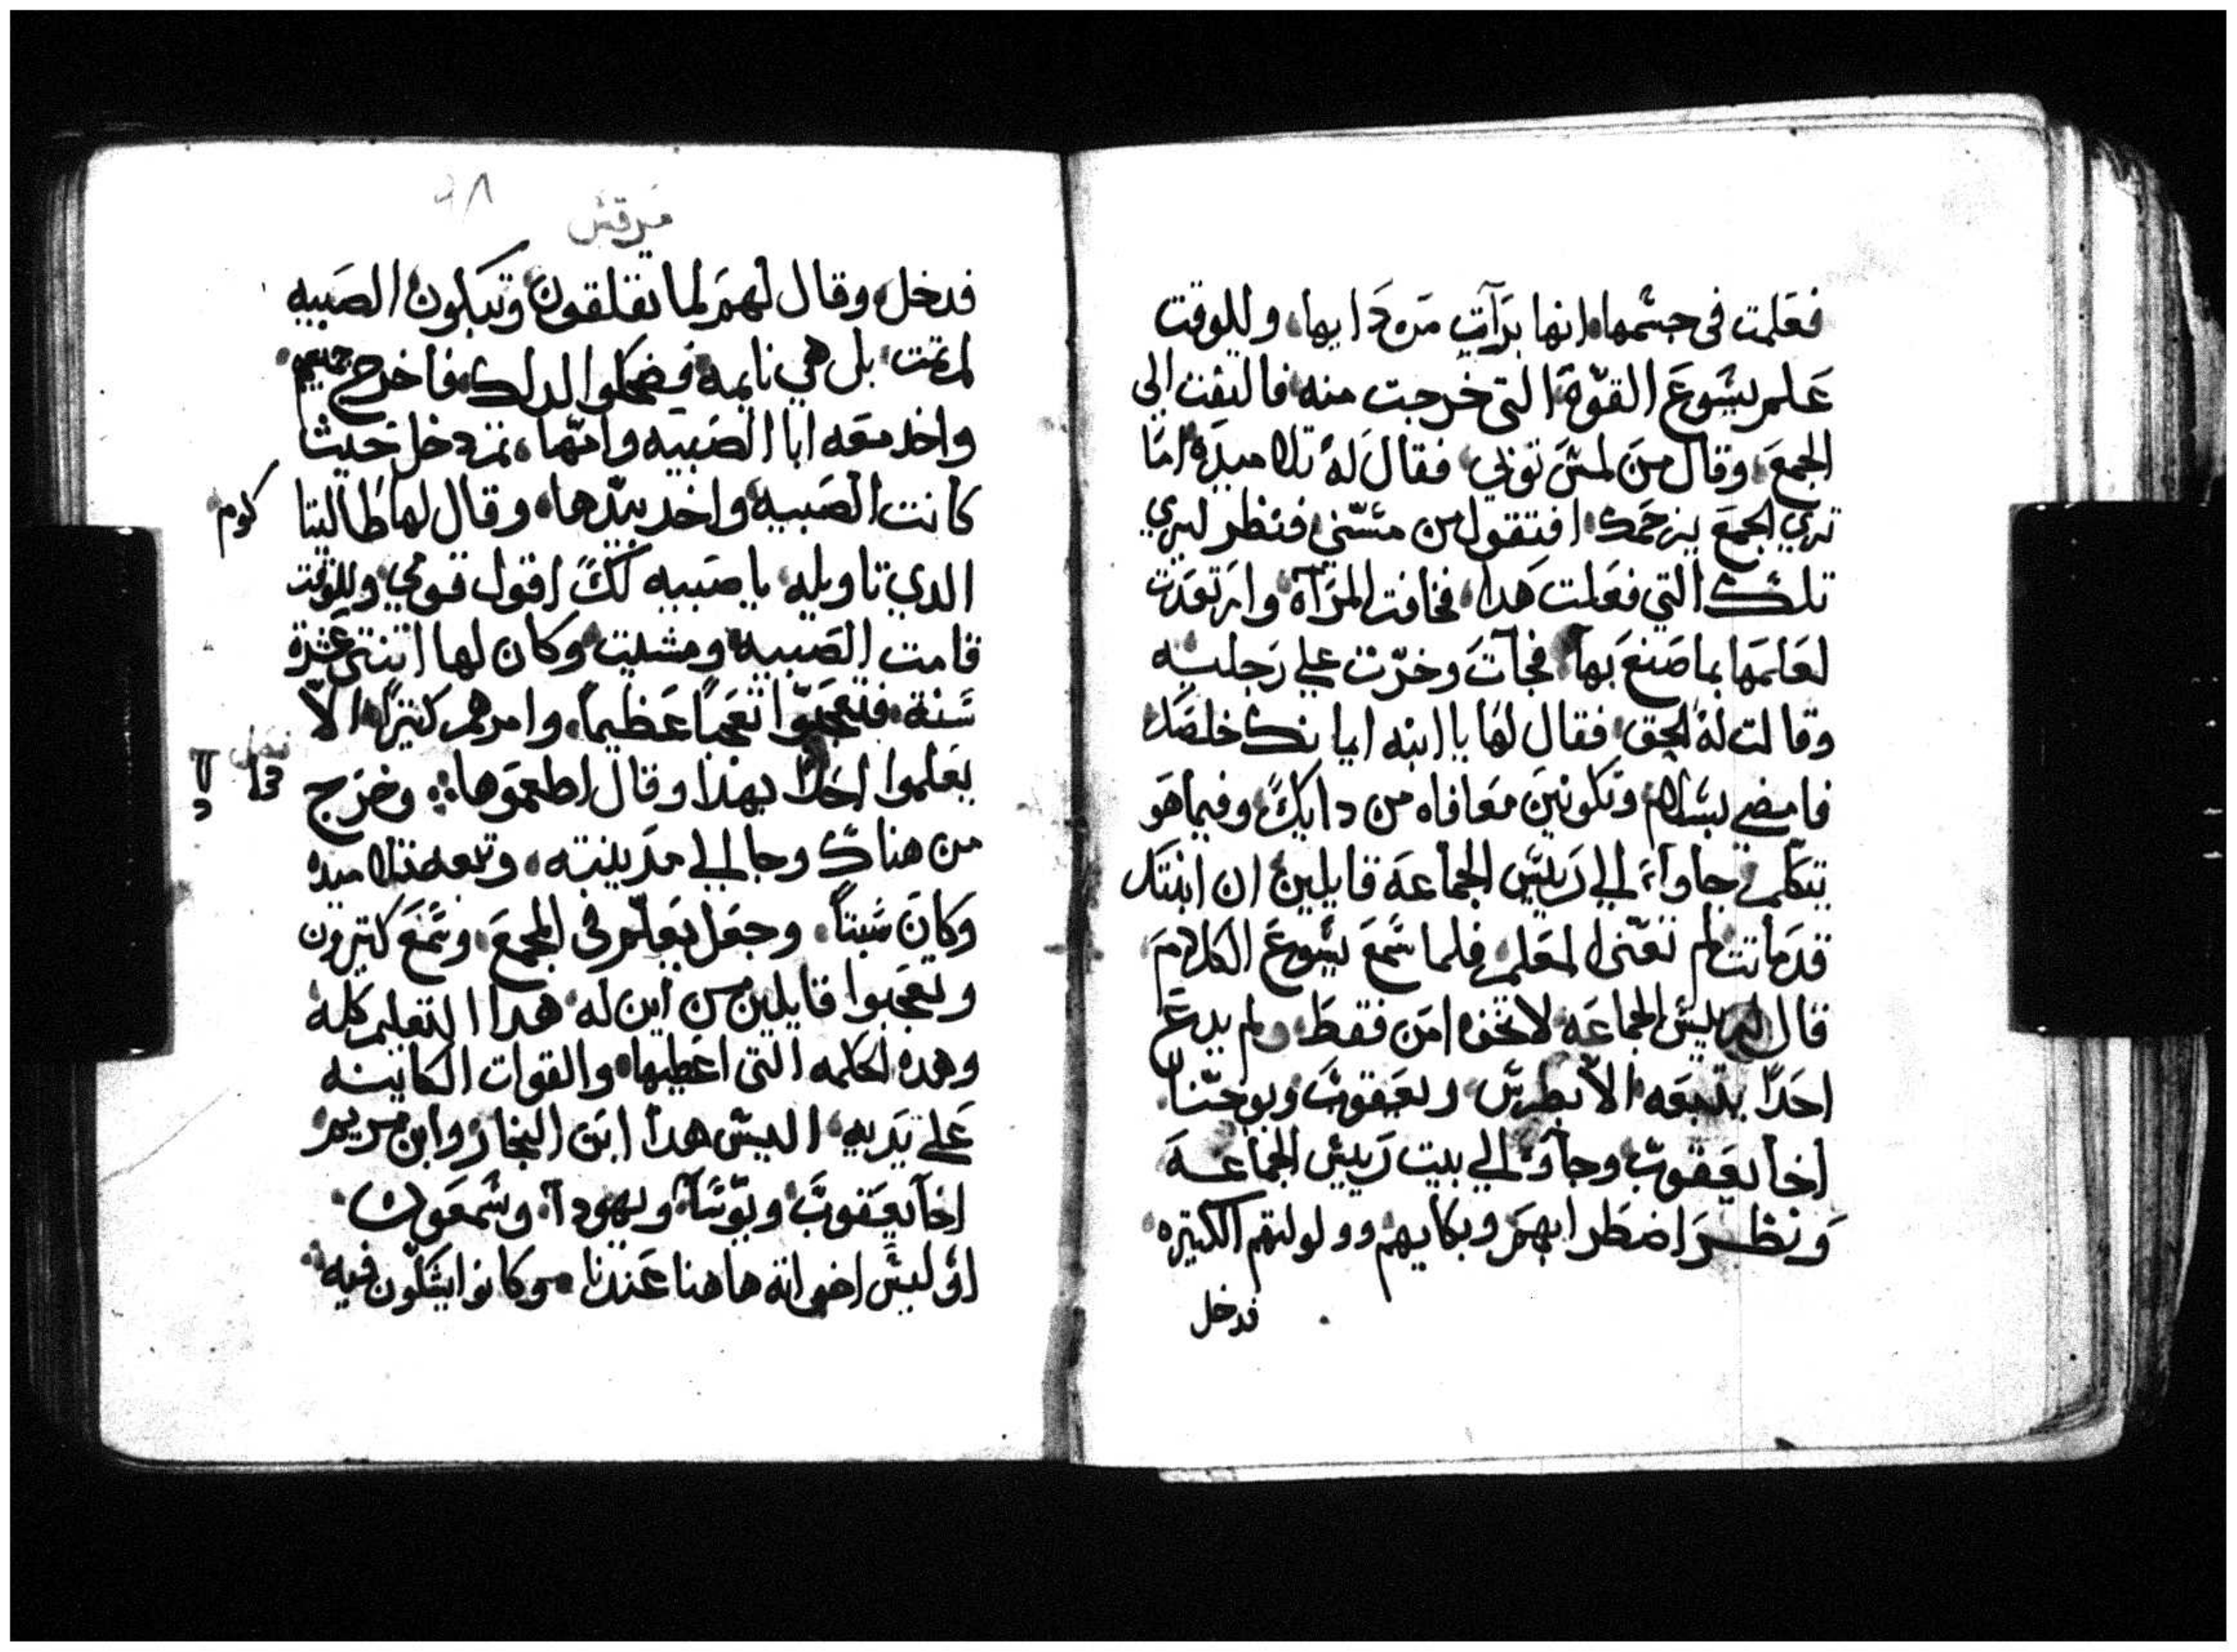 فعلمت فى جسمها انها برأت من دايها، وللوقت
علم يسوع القوة التى خرجت منه فالتفت الى
الجمع، وقال من لمس توبى، فقال له تلاميده اما
ترى الجمع يزحمك افتقول من مسنى فنظر ليرى
تلك التي فعلت هدا، فخافت المرآة وارتعدت
لعلمها بما صنع بها فجآت وخرت على رجليه
وقالت له الحق، فقال لها يا ابنه ايمانك خلصك
فامضى بسلام وتكونين معافاه من دايك، وفيما هو
يتكلم جاوا الي رييس الجماعه قايلين ان ابنتك
قد ماتت لم تعنى المعلم، فلما سمع يسوع الكلام
قال لرييس الجماعه لا تخف امن فقط، ولم يدع
احدًا يتبعه الا بطرس ويعقوب ويوحنا
اخا يعقوب وجآو الي بيت رييس الجماعه
ونظر اضطرابهم وبكايهم وولولتهم الكتيره
فدخل
مرقس
٩٨
فدخل، وقال لهم لما تقلقون وتبكون الصبيه
لم تمت بل هي نايمه فضحكوا لدلك، فاخرج جميعهم
واخد معه ابا الصبيه وامها، تم دخل حيث
كانت الصبيه واخد بيدها، وقال لها طاليتا كوم
الدي تاويله يا صبيه لك اقول قومي وللوقت
قامت الصبيه ومشيت وكان لها اتنتى عشرة
سنة، فتعجبوا تعجبًا عظيمًا، وامرهم كتيرًا الا
يعلموا احدًا بهدا وقال اطعموها وخرج
من هناك وجا الي مدينته، وتبعه تلاميده
وكان سبتًا، وجعل يعلم فى المجمع، وسمع كتيرون
وتعجبوا قايلين من اين له هدا التعليم كله
وهده الحكمه التى اعطيها، والقوات الكاينه
على يديه، اليس هدا ابن النجار وابن مريم
اخا يعقوب ويوسا ويهودا، وسمعون
اوليس اخواته هاهنا عندنا، وكانوا يشكون فيه